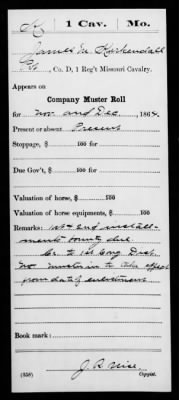 K | 1 Cav. | Mo.
James M. Kuykendall
Pvt., Co. D, 1 Reg't Missouri Cavalry.
Appears on
Company Muster Roll
for Nov. and Dec., 1864.
Present or absent Present
Stoppage, $ 100 for
Due Gov't, $ 100 for
Valuation of horse, $ 100
Valuation of horse equipments, $ 100
Remarks: 1st & 2nd install-
ments bounty due.
Cr. to 1st Cong. Dist.
Mo muster in to take effect
from date of enlistment
Book mark:
J. R. Wise
(858) Copyist.